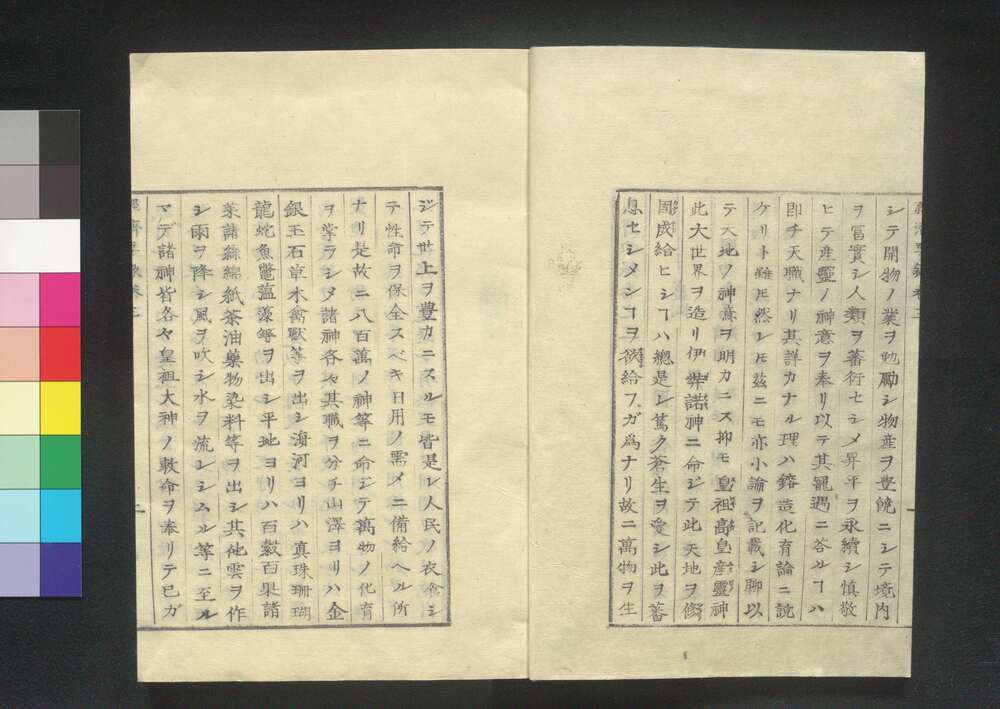 シテ開物ノ業ヲ勉勵シ物産ヲ豊饒ニシテ境内
ヲ冨實シ人類ヲ蕃衍セシメ昇平ヲ永續シ慎敬
ヒテ産靈ノ神意ヲ奉リ以テ其寵遇ニ答ルコハ
即チ天職ナリ其詳カナル理ハ鎔造化育論ニ説
ケリト雖𪜈然レ𪜈茲ニモ亦小論ヲ記載シ聊以
テ天地ノ神意ヲ明カニス抑モ皇祖高皇産靈神
此大世界ヲ造リ伊弉諾神ニ命ジテ此天地ヲ修
固成給ヒシコハ總是レ篤ク蒼生ヲ愛シ此ヲ蕃
息セシメンコヲ欲給フガ爲ナリ故ニ萬物ヲ生
ジテ世上ヲ豊カニスルモ皆是レ人民ノ衣食シ
テ性命ヲ保全スベキ日用ノ需メニ備給ヘル所
ナリ是故ニ八百萬ノ神等ニ命ジテ萬物ノ化育
ヲ掌ラシメ諸神各々其職ヲ分チ山澤ヨリハ金
銀玉石草木禽獸等ヲ出シ海河ヨリハ真珠珊瑚
龍蛇魚鼈薀藻等ヲ出シ平地ヨリハ百穀百果諸
菜諸絲綿紙茶油藥物染料等ヲ出シ其他雲ヲ作
シ雨ヲ降シ風ヲ吹シ水ヲ流レシムル等ニ至ル
マデ諸神皆各々皇祖大神ノ敕命ヲ奉リテ已ガ